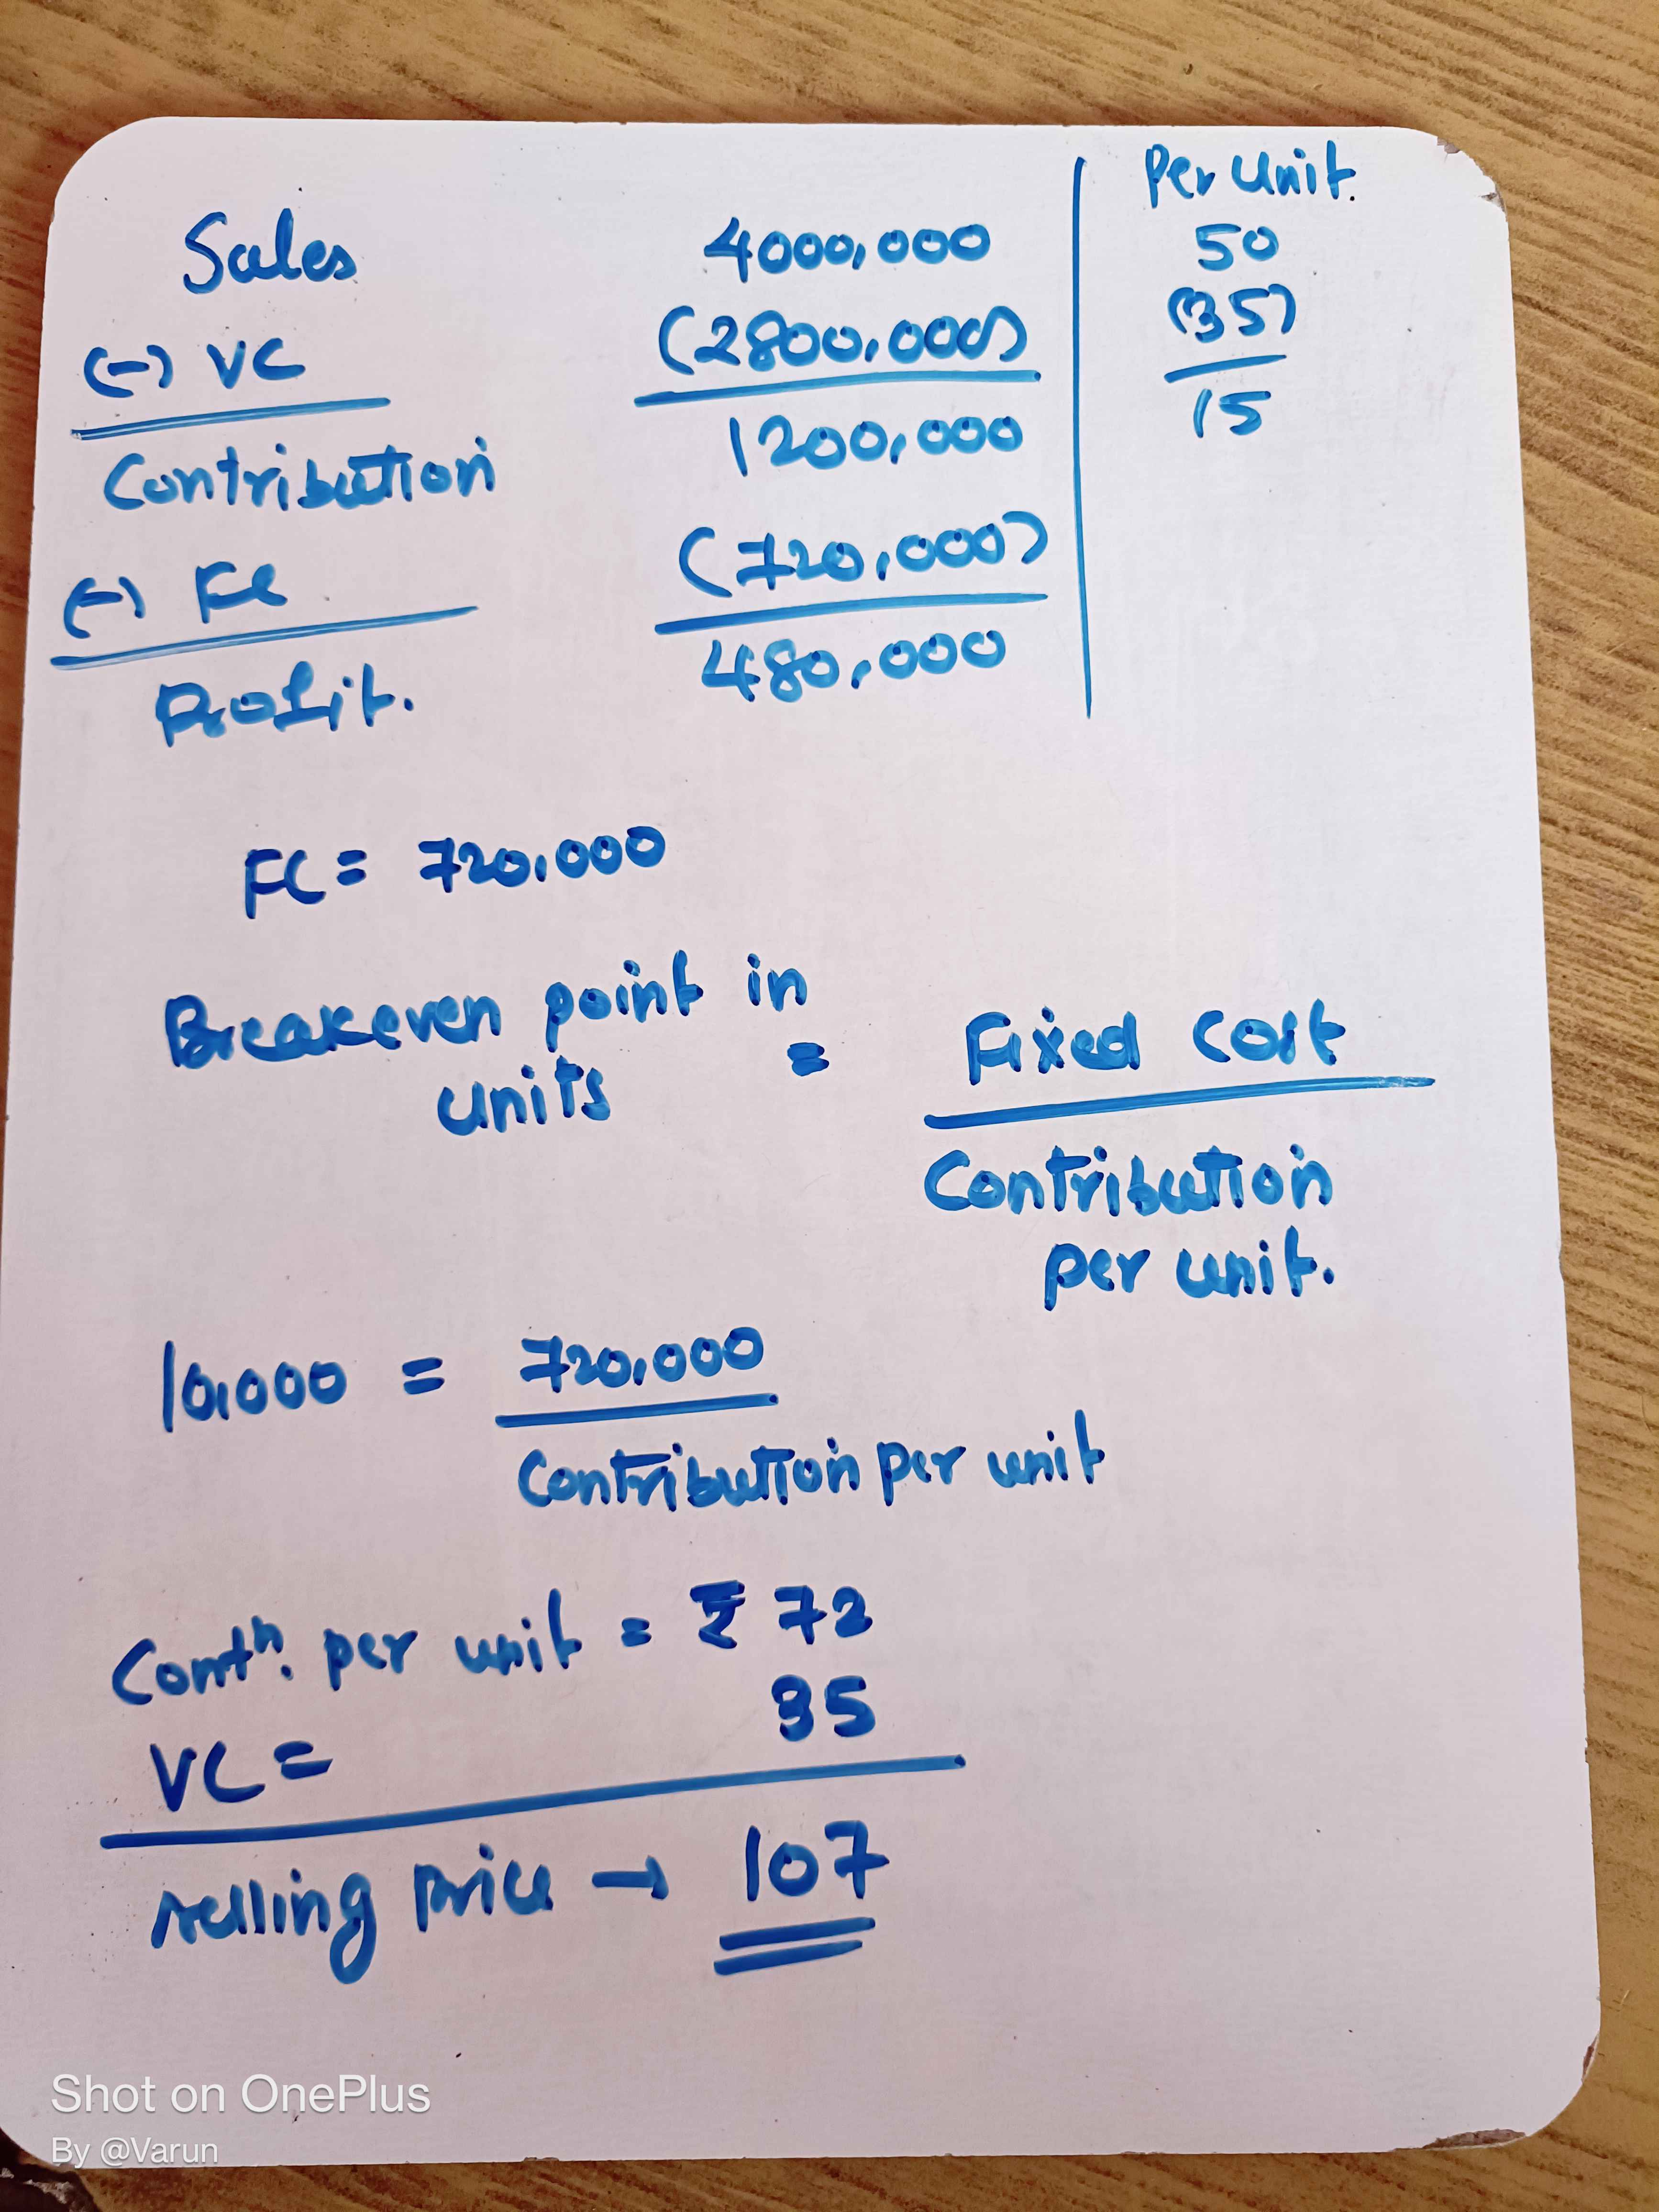 Per Unit.
Sales 4000,000 50
(-) VC (2800,000) (35)
Contribution 1200,000 15
(-) FC (720,000)
Profit. 480,000
FC = 720,000
Breakeven point in units = Fixed Cost
Contribution per unit.
10,000 = 720,000
Contribution per unit
Contn. per unit = ₹ 72
VC = 35
selling price → 107
Shot on OnePlus
By @Varun